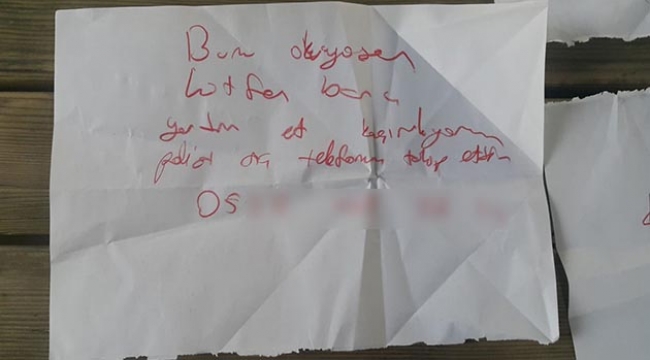 Bunu okuyosan
Lütfen bana
yardım et kaçırılıyorum
polisi ara telefonumu takip etsin
05